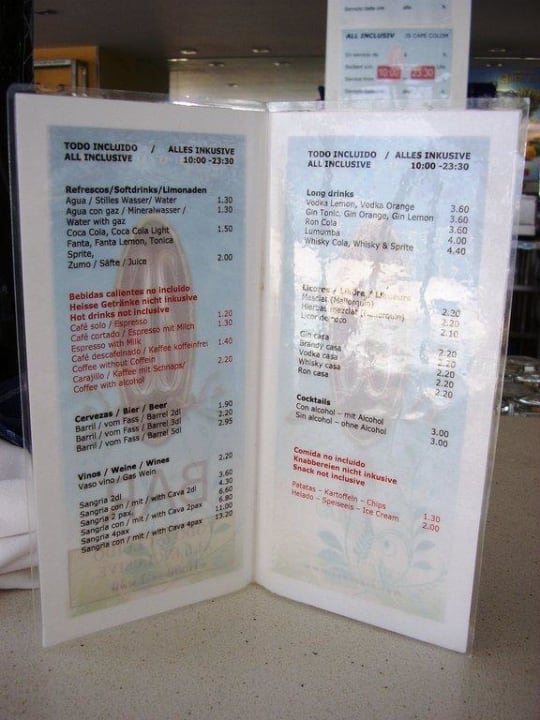 ALL INCLUSIV
10:00
23:30
TODO INCLUIDO / ALLES INKUSIVE
ALL INCLUSIVE 10:00 -23:30
Refrescos/Softdrinks/Limonaden
Agua / Stilles Wasser/ Water 1.30
Agua con gaz / Mineralwasser / 1.30
Water with gaz
Coca Cola, Coca Cola Light 1.50
Fanta, Fanta Lemon, Tonica
Sprite,
Zumo / Säfte / Juice 2.00
Bebidas calientes no incluido
Heisse Getränke nicht inkusive
Hot drinks not inclusive
Café solo / Espresso 1.20
Café cortado / Espresso mit Milch 1.30
Espresso with Milk
Café descafeinado / Kaffee koffeinfrei 1.40
Coffee without Coffein
Carajillo / Kaffee mit Schnaps/ 2.20
Coffee with alcohol
Cervezas / Bier / Beer
Barril / vom Fass / Barrel 2dl 1.90
Barril / vom Fass / Barrel 3dl 2.20
Barril / vom Fass / Barrel 5dl 2.95
Vinos / Weine / Wines
Vaso vino / Gas Wein 2.20
Sangria 2dl 3.60
Sangria con / mit / with Cava 2dl 4.30
Sangria 2 pax, 6.60
Sangria con / mit / with Cava 2pax 6.80
Sangria 4pax 11.00
Sangria con / mit / with Cava 4pax 13.20
TODO INCLUIDO / ALLES INKUSIVE
ALL INCLUSIVE 10:00 -23:30
Long drinks
Vodka Lemon, Vodka Orange 3.60
Gin Tonic, Gin Orange, Gin Lemon 3.60
Ron Cola 3.60
Lumumba 4.00
Whisky Cola, Whisky & Sprite 4.40
Licores /
Mesclat (Mallorquin) 2.20
Hierbas mezclat 2.20
Licor de coco 2.10
Gin casa 2.20
Brandy casa 2.20
Vodka casa 2.20
Whisky casa 2.20
Ron casa 2.20
Cocktails
Con alcohol – mit Alcohol 3.00
Sin alcohol – ohne Alcohol 3.00
Comida no incluido
Knabbereien nicht inkusive
Snack not inclusive
Patatas – Kartoffeln – Chips 1.30
Helado – Speiseeis – Ice Cream 2.00